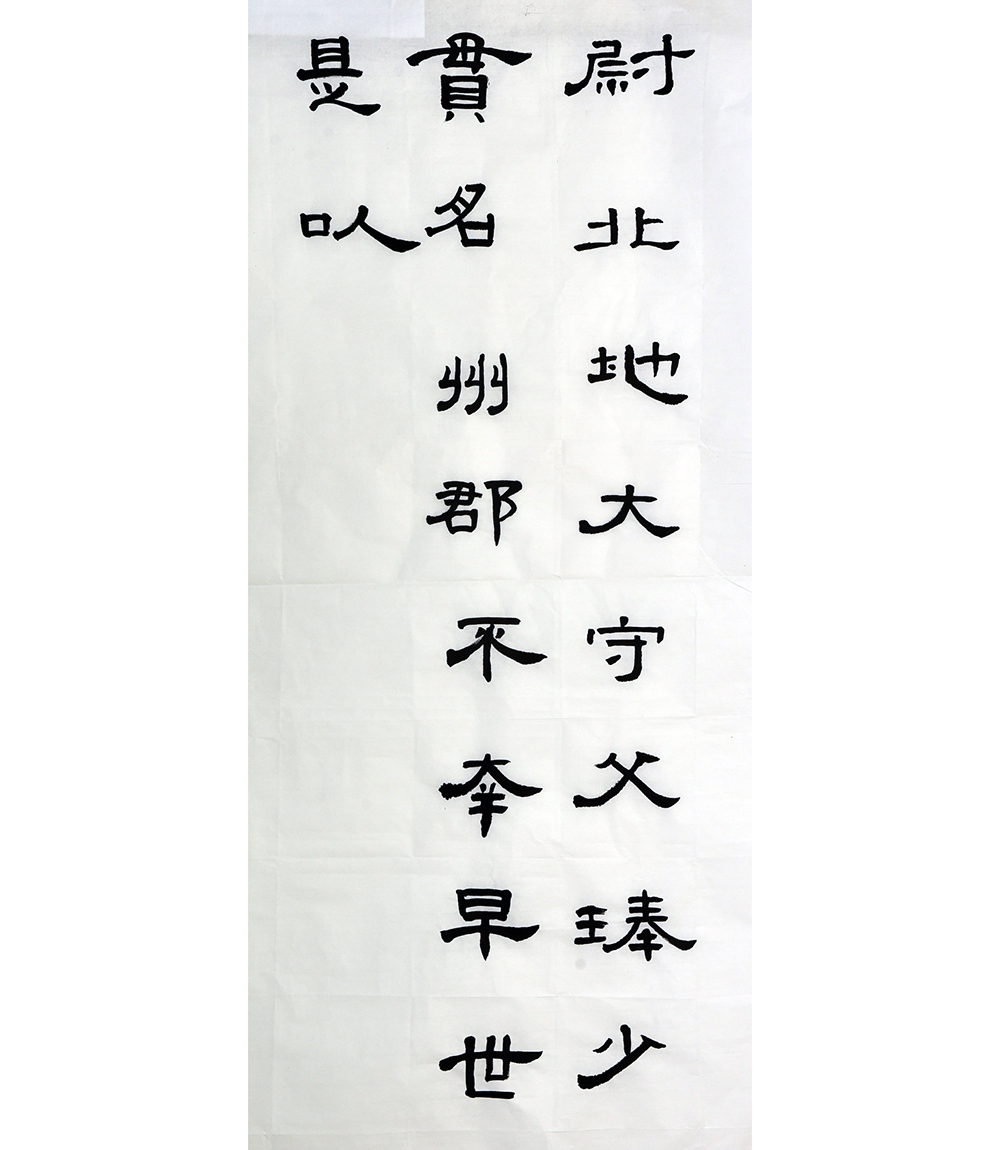 尉北地大守父琫少
貫名州郡不幸早世
是以